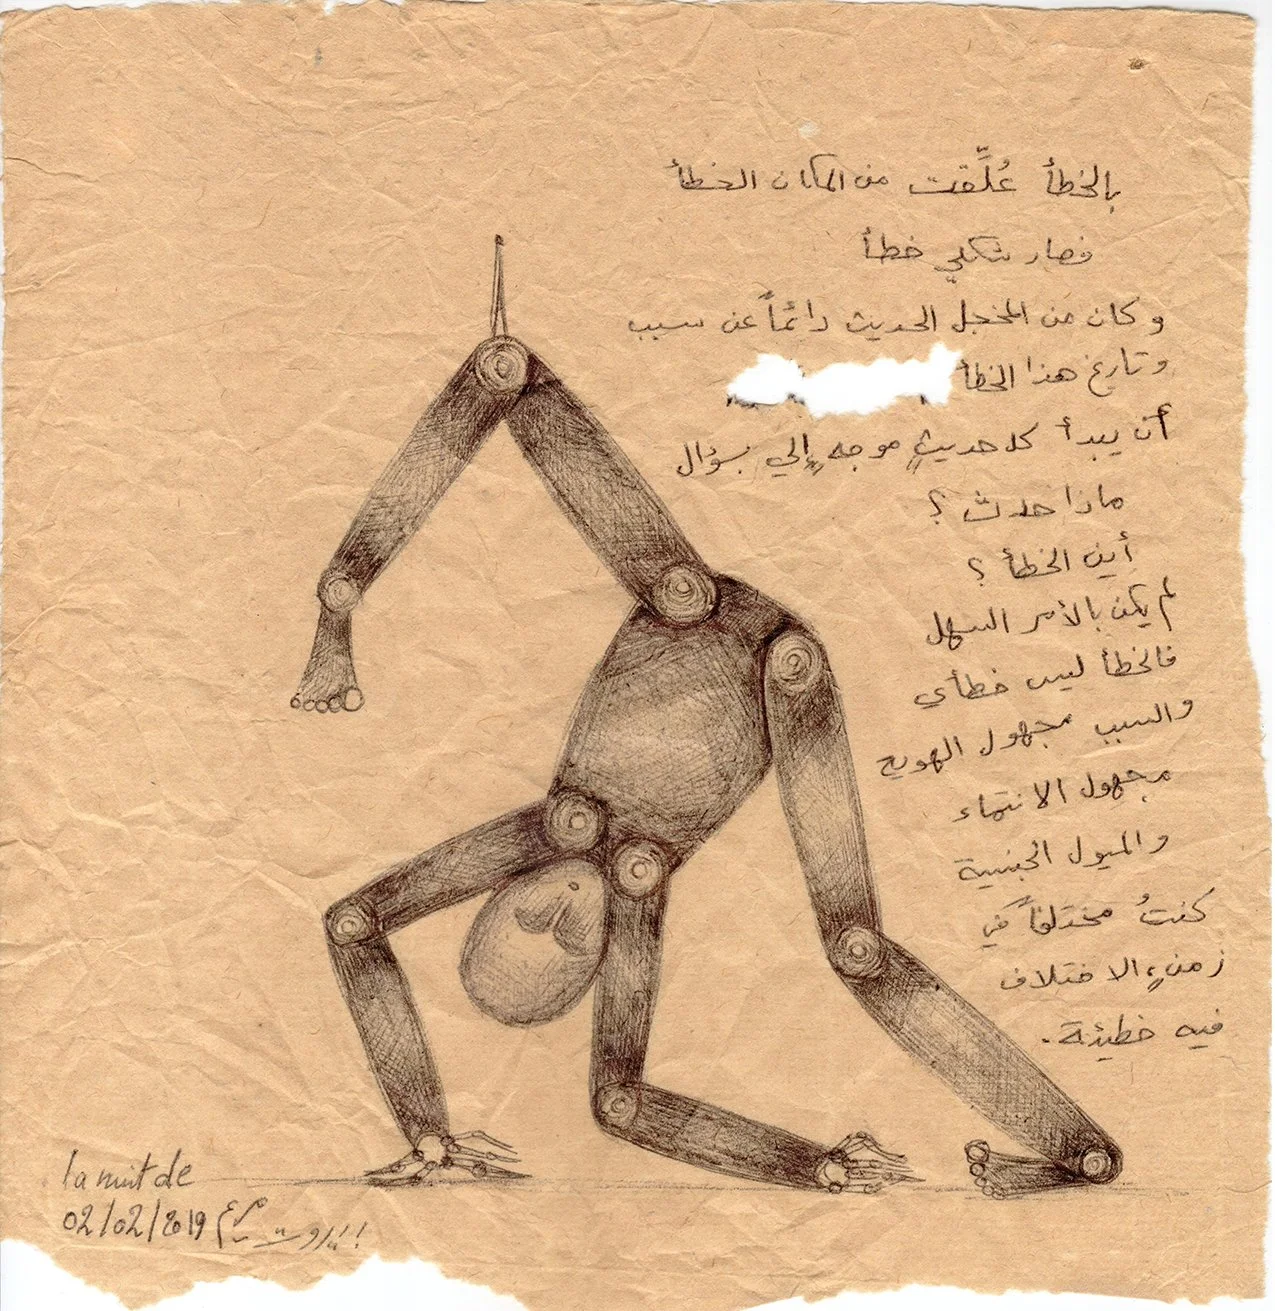 بالخطأ عُلِّقت من المكان الخطأ
فصار شكلي خطأ
و كان من المخجل الحديث دائماً عن سبب
وتاريخ هذا الخطأ
أن يبدأ كل حديثٍ موجهٍ إلي بسؤال
ماذا حدث ؟
أين الخطأ ؟
لم يكن بالأمر السهل
فالخطأ ليس خطأي
والسبب مجهول الهوية
مجهول الانتماء
والميول الجنسية
كنتُ مختلفاً في
زمنٍ الاختلاف
فيه خطيئة.
la nuit de
02/02/2019